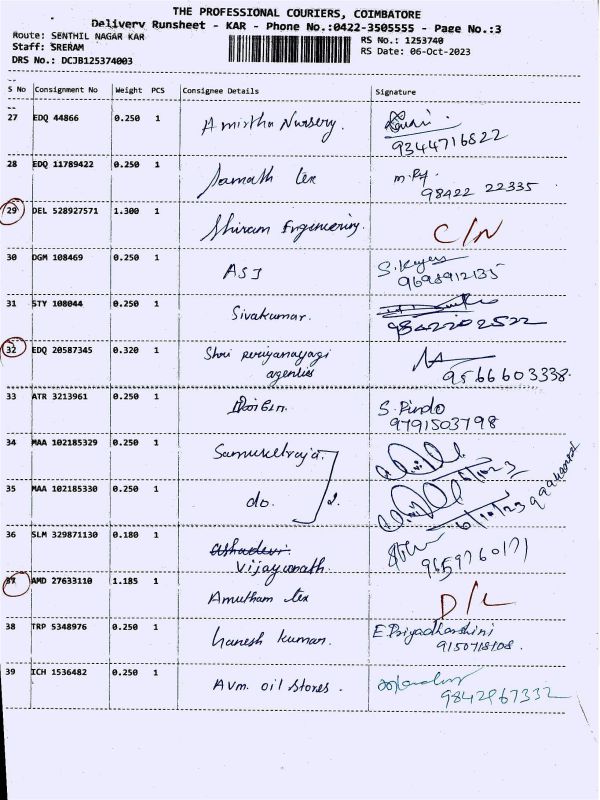 THE PROFESSIONAL COURIERS, COIMBATORE
Delivery Runsheet - KAR - Phone No.:0422-3505555 - Page No.:3
Route: SENTHIL NAGAR KAR
RS No.: 1253740
Staff: SRERAM
RS Date: 06-Oct-2023
DRS No.: DCJB125374003
S No Consignment No Weight PCS Consignee Details Signature
27 EDQ 44866 0.250 1 Amirtha Nursery.
9344716822
28 EDQ 11789422 0.250 1 tex
98422 22335
29 DEL 528927571 1.300 1 Shiram Engineering. C/N
30 DGM 108469 0.250 1 ASI
9698912135
31 STY 108044 0.250 1 Sivakumar.
9842202522
32 EDQ 20587345 0.320 1 Shri periyanayagi
agenties
9566603338
33 ATR 3213961 0.250 1 S. Pindo
9791503798
34 MAA 102185329 0.250 1 Samuvelraja
35 MAA 102185330 0.250 1 do. 2.
6/10/23
36 SLM 329871130 0.180 1 ashadevi
Vijaywnath.
9659760171
37 AMD 27633110 1.185 1 Amutham tex D/L
38 TRP 5348976 0.250 1 Ganesh kumar. E. Priyadharshini
9150718108.
39 ICH 1536482 0.250 1 Avm. oil stores.
9842967332